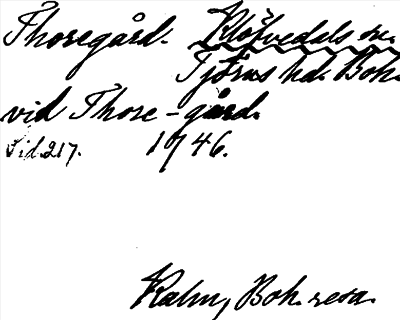 Thoregård. Klöfvedals sn.
Tjörns hd. Boh.
vid Thore-gård.
Sid. 217. 1746.
Kalm, Boh. resa.